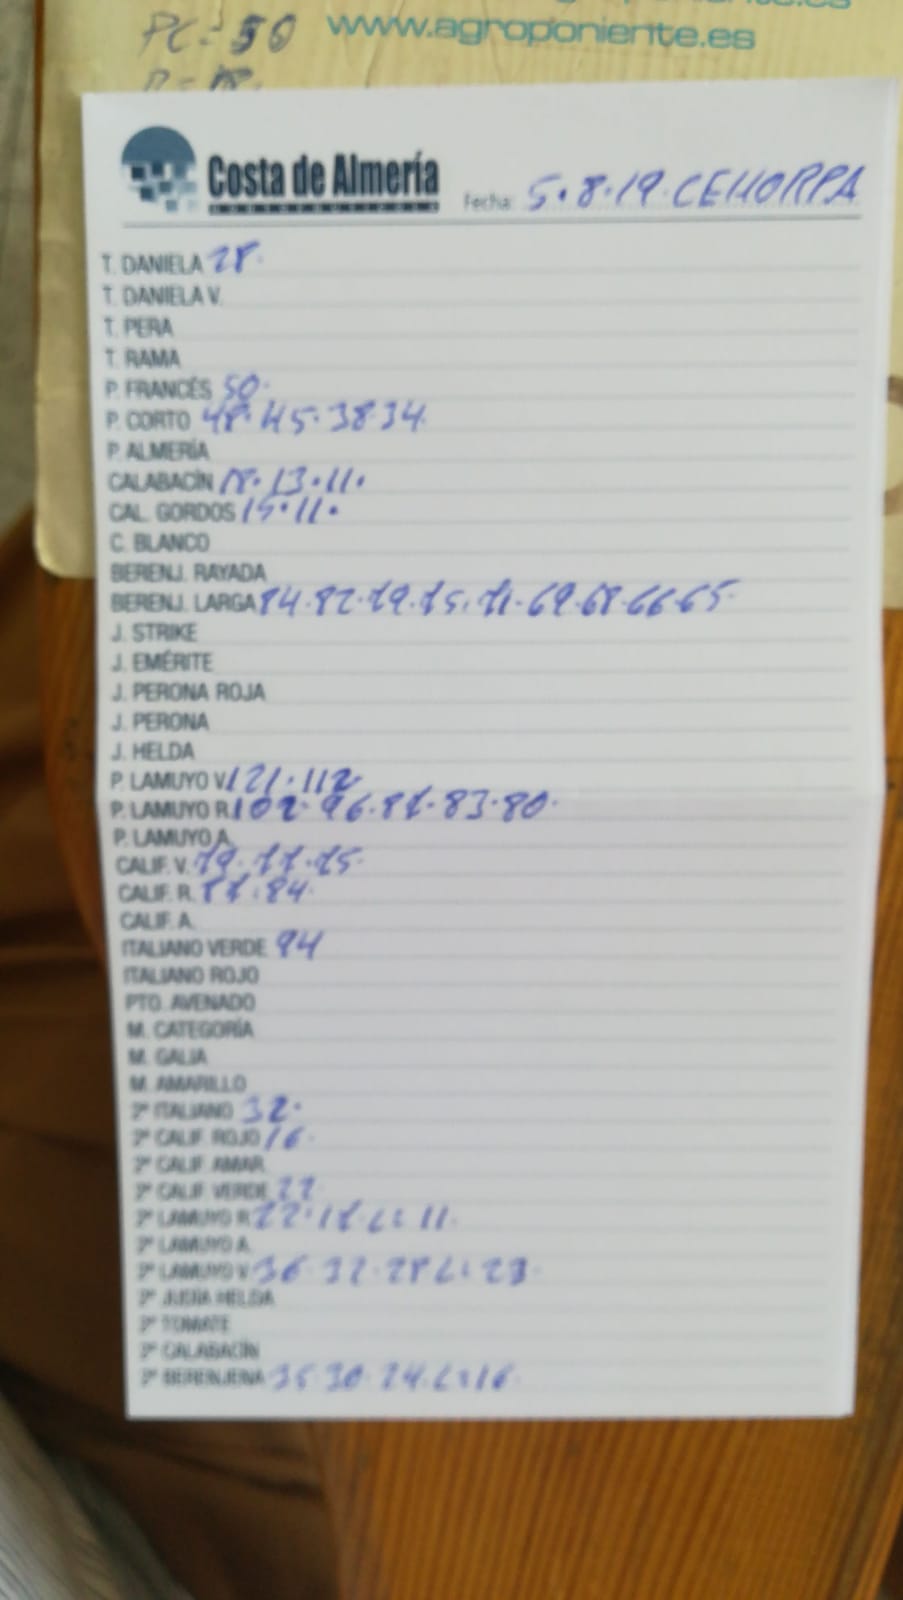 PC = 50 www.agroponiente.es
Costa de Almería
Fecha: 5.8.19.CEHORPA
T. DANIELA 28.
T. DANIELA V.
T. PERA
T. RAMA
P. FRANCÉS 50.
P. CORTO 48.45.38 34
P. ALMERÍA
CALABACÍN 18.13.11.
CAL. GORDOS 15.11.
C. BLANCO
BERENJ. RAYADA
BERENJ. LARGA 84.82.79.75.71.69.68.66.65.
J. STRIKE
J. EMÉRITE
J. PERONA ROJA
J. PERONA
J. HELDA
P. LAMUYO V. 121.112
P. LAMUYO R. 102.96.87.83.80.
P. LAMUYO A.
CALIF. V. 79.77.75.
CALIF. R. 87.84.
CALIF. A.
ITALIANO VERDE 94
ITALIANO ROJO
PTO. AVENADO
M. CATEGORÍA
M. GALIA
M. AMARILLO
2ª ITALIANO 32.
2ª CALIF. ROJO 16.
2ª CALIF. AMAR.
2ª CALIF. VERDE 22
2ª LAMUYO R. 22.17.L:11.
2ª LAMUYO A.
2ª LAMUYO V. 36.32.28 L:23.
2ª JUDÍA HELDA
2ª TOMATE
2ª CALABACÍN
2ª BERENJENA 35.30.24.L:16.